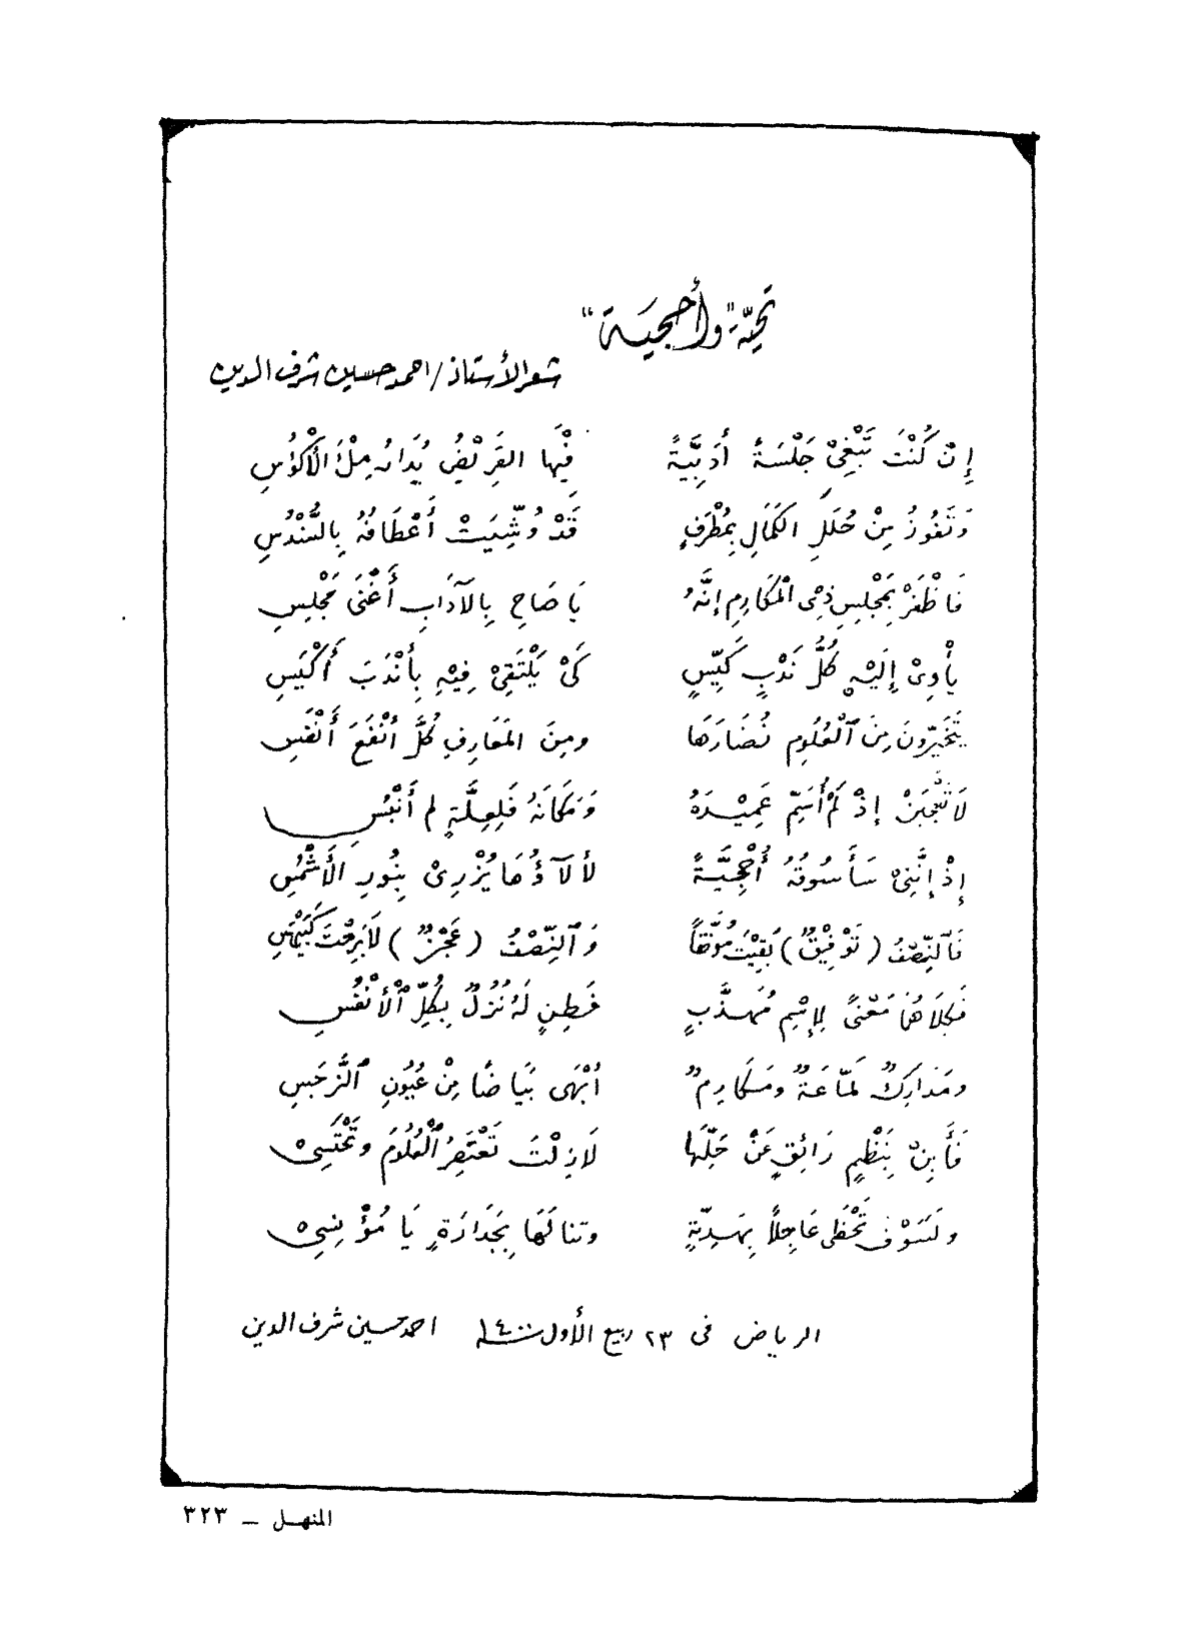 تحيّة "وأحجية"
شعر الأستاذ/ احمد حسين شرف الدين
إِنْ كُنْتَ تَبْغِيْ جَلْسَةً أَدَبِيَّةً فِيْهَا القَرِيْضُ يُدَارُ مِلْءَ الأَكْؤُسِ
وَتَفُوزُ مِنْ حُلَلِ الكَمَالِ بِمُطْرَفٍ قَدْ وُشِّيَتْ أَعْطَافُهُ بِالسُّنْدُسِ
فَاظْفَرْ بِمَجْلِسِ ذِي المَكَارِمِ إِنَّهُ يَا صَاحِ بِالآدَابِ أَغْنَى مَجْلِسِ
يَأْوِيْ إِلَيْهِ كُلُّ نَدْبٍ كَيِّسٍ كَيْ يَلْتَقِيْ فِيْهِ بِأَنْدَبَ أَكْيَسِ
يَتَخَيَّرُونَ مِنَ العُلُومِ نُضَارَهَا ومِنَ المَعَارِفِ كُلَّ أَنْفَعَ أَنْفَسِ
لَا تَعْجَبَنْ إِذْ لَمْ أُسَمِّ عَمِيْدَهُ وَمَكَانَهُ فَلِعِلَّةٍ لم أَنْبُسِ
إِذْ إِنَّنِيْ سَأَسُوقُهُ أُحْجِيَّةً لَأْلَآؤُهَا يُزْرِيْ بِنُورِ الأَشْمُسِ
فَالنِّصْفُ (تَوْفِيْقٌ) بَقِيْتَ مُوَفَّقاً وَالنِّصْفُ (عَجْزٌ) لَا بَرِحْتَ كَبَيْهَسِ
فَكِلَاهُمَا مَعْنًى لِإِسْمِ مُهَذَّبٍ فَطِنٍ لَهُ نُزُلٌ بِكُلِّ الأَنْفُسِ
ومَدَارِكٌ لَمَّاعَةٌ ومَكَارِمٌ أَبْهَى بَيَاضًا مِنْ عُيُونِ النَّرْجِسِ
فَأَبِنْ بِنَظْمٍ رَائِقٍ عَنْ حَلِّهَا لَا زِلْتَ تَعْتَصِرُ العُلُومَ وتَحْتَسِيْ
ولَسَوْفَ تَحْظَى عَاجِلاً بِهَدِيَّةٍ وتنالَهَا بِجَدَارَةٍ يَا مُؤْنِسِيْ
الرياض في ٢٣ ربيع الأول ١٤٠٠ احمد حسين شرف الدين
المنهـل ــ ٣٢٣